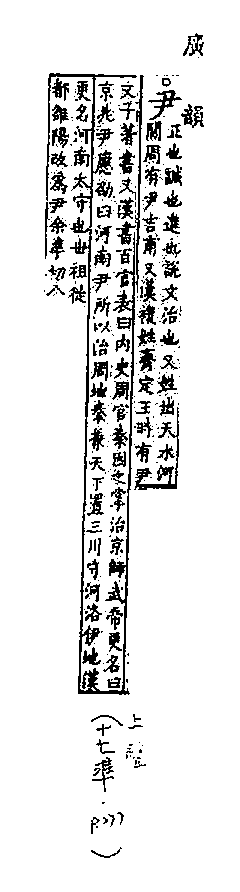 廣韻
尹 正也誠也進也說文治也又姓出天水河
間周有尹吉甫又漢複姓齊定王時有尹
文子著書又漢書百官表曰內史周官秦因之掌治京師武帝更名曰
京兆尹應劭曰河南尹所以治周地秦兼天下置三川守河洛伊地漢
更名河南太守也世祖徙
都雒陽改爲尹余準切八
上聲
(十七準.p277)